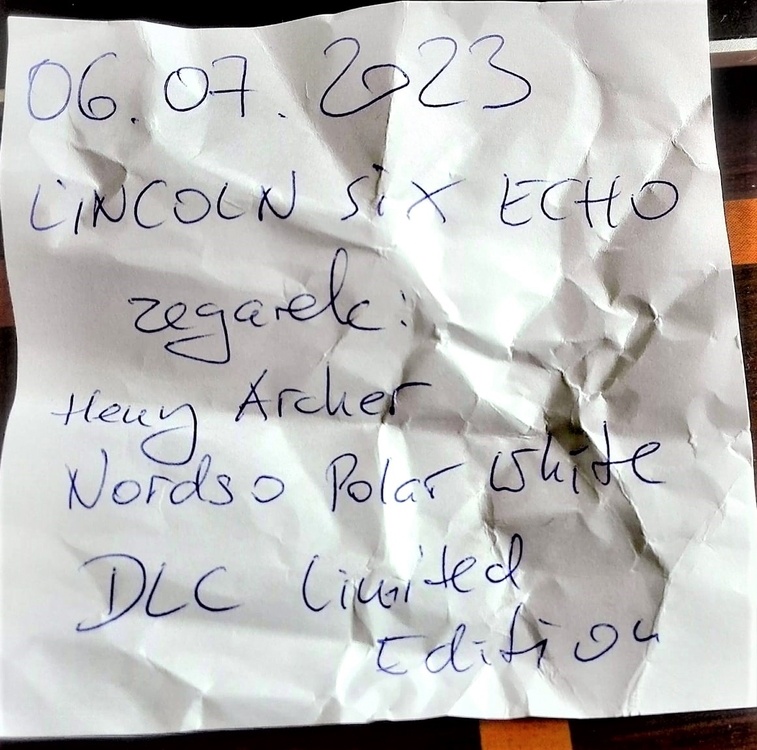 06.07.2023
LINCOLN SIX ECHO
zegarek:
Henry Archer
Nordsø Polar White
DLC Limited
Edition